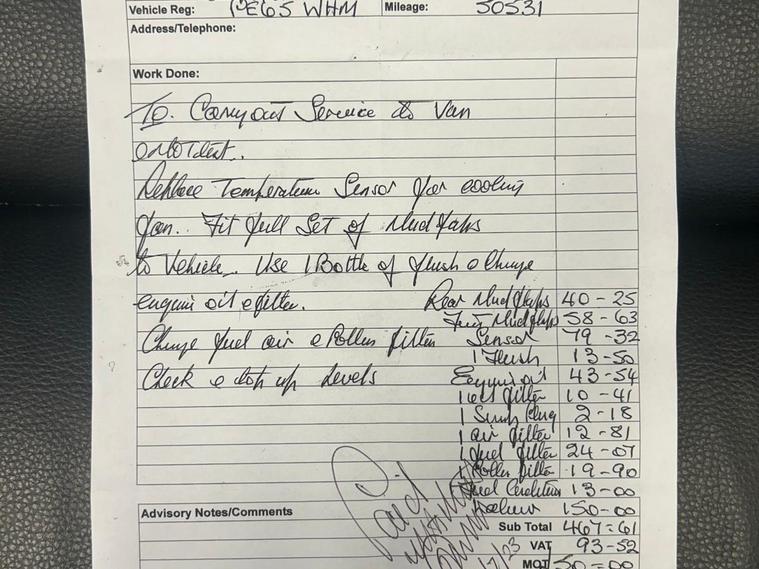 Vehicle Reg: PE65 WHM Mileage: 50531
Address/Telephone:
Work Done:
To Carry out Service to Van
Replace Temperature Sensor for cooling
fan. Fit full Set of Mud flaps
to Vehicle. Use 1 Bottle of flush & Change
engine oil & filter. Rear Mud flaps 40-25
Frnt Mud flaps 58-63
Change fuel air & Pollen filter Sensor 79-32
1 Flush 13-50
Check & top up Levels Engine oil 43-54
1 oil filter 10-41
1 Sump Plug 2-18
1 air filter 12-81
1 fuel filter 24-07
1 Pollen filter 19-90
13-00
150-00
Advisory Notes/Comments
Paid
Sub Total 467=61
VAT 93-52
MOT 50=00